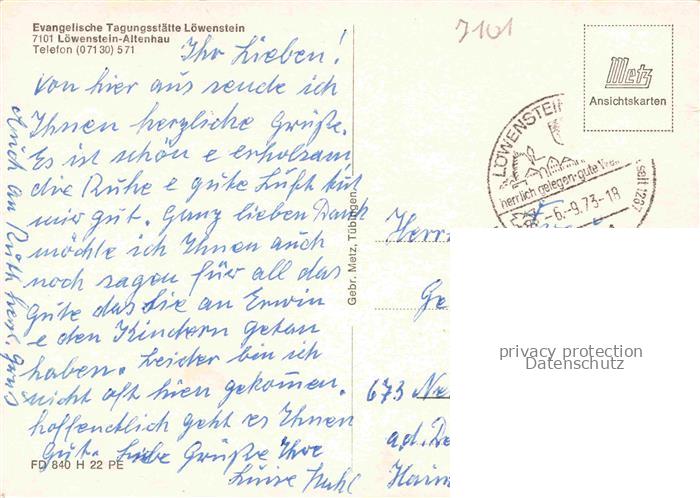 Evangelische Tagungsstätte Löwenstein
7101 Löwenstein-Altenhau
Telefon (07130) 571
Ihr Lieben!
Von hier aus sende ich
Ihnen herzliche Grüße.
Es ist schön e erholsam
die Ruhe e gute Luft tut
mir gut. Ganz lieben Dank
möchte ich Ihnen auch
noch sagen für all das
Gute das Sie an Erwin
e den Kindern getan
haben. Leider bin ich
nicht oft hien gekommen.
hoffentlich geht es Ihnen
Gut. Liebe Grüße Ihre
Luise
Auch an Ruth herzl. Grüß
FD 840 H 22 PE
Gebr. Metz, Tübingen
7101
Metz
Ansichtskarten
LÖWENSTEIN
herrlich gelegen-gute
seit 1287
-6.-9.73-18
Herrn
Ge
673 Ne
ad. De
Hain
privacy protection
Datenschutz